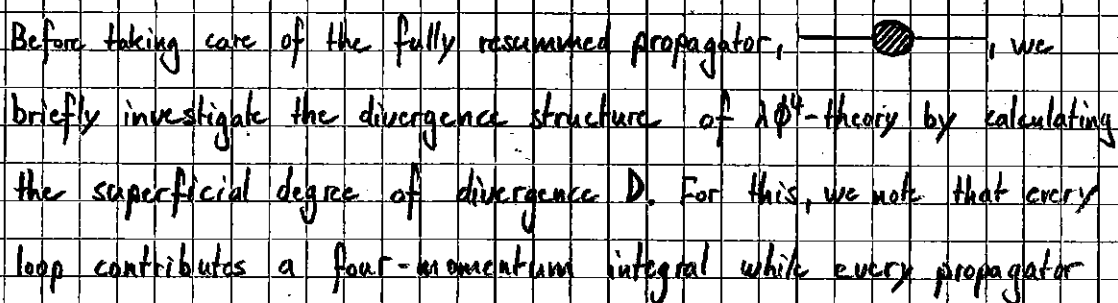 Before taking care of the fully resummed propagator, , we
briefly investigate the divergence structure of λϕ⁴-theory by calculating
the superficial degree of divergence D. For this, we note that every
loop contributes a four-momentum integral while every propagator